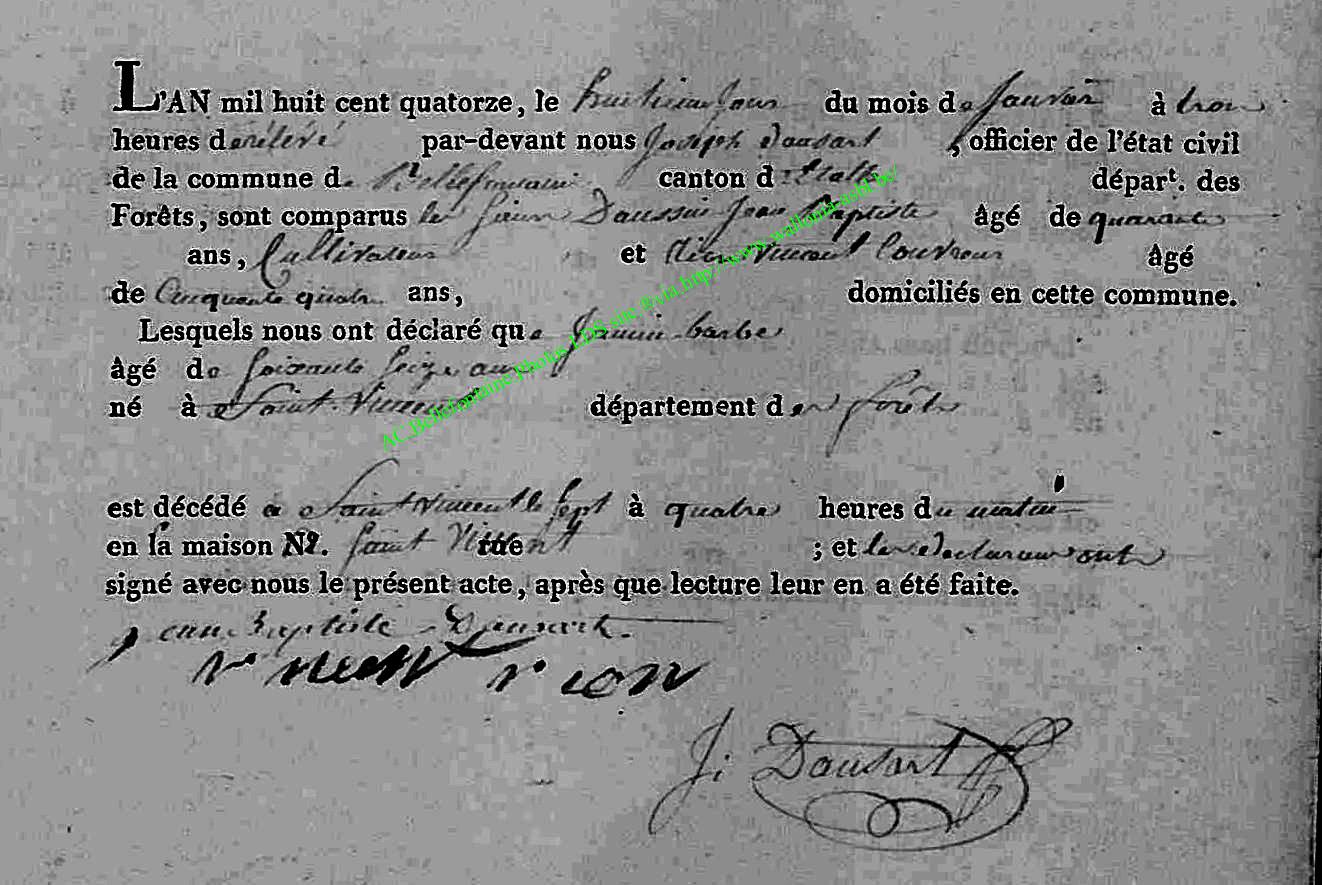 L'AN mil huit cent quatorze, le huitieme jour du mois de Janvier à trois
heures de relevé par-devant nous Joseph Dausart, officier de l'état civil
de la commune de Bellefontaine, canton d'Etalle départ. des
Forêts, sont comparus le sieur Jean Baptiste âgé de quarante
ans, Cultivateur et Vincent âgé
de Cinquante quatre ans, domiciliés en cette commune.
Lesquels nous ont déclaré que barbe
âgé de soixante seize ans
né à Saint-Vincent département des forêts
est décédé a Saint Vincent le sept à quatre heures du matin
en la maison Nº. Saint Vincent ; et les declarans ont
signé avec nous le présent acte, après que lecture leur en a été faite.
jean Baptiste Dausart.
J: Dausart
AC_Bellefontaine Photos LDS site &via http://www.wallonia-asbl.be/